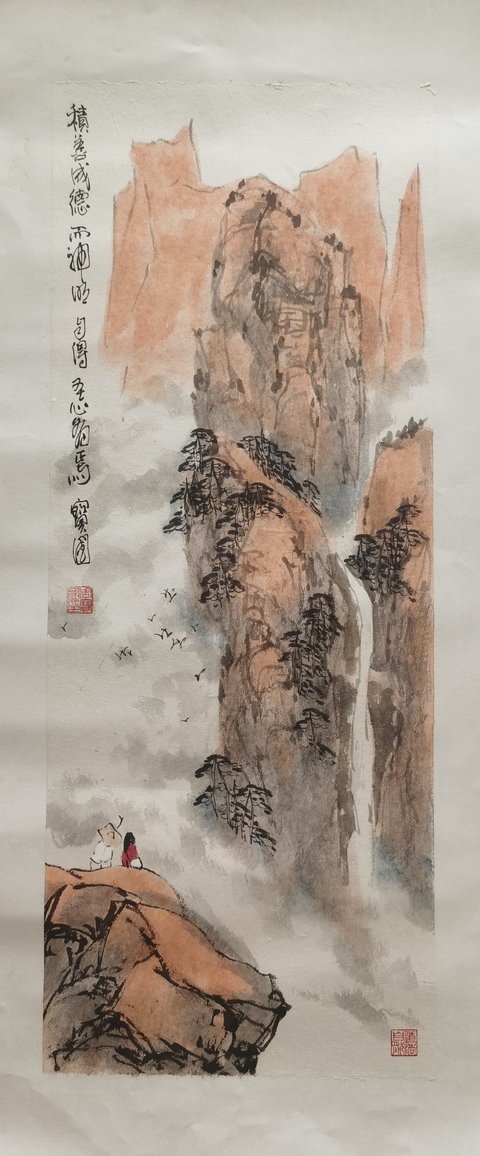 積善成德而神明自得圣心备焉寶國